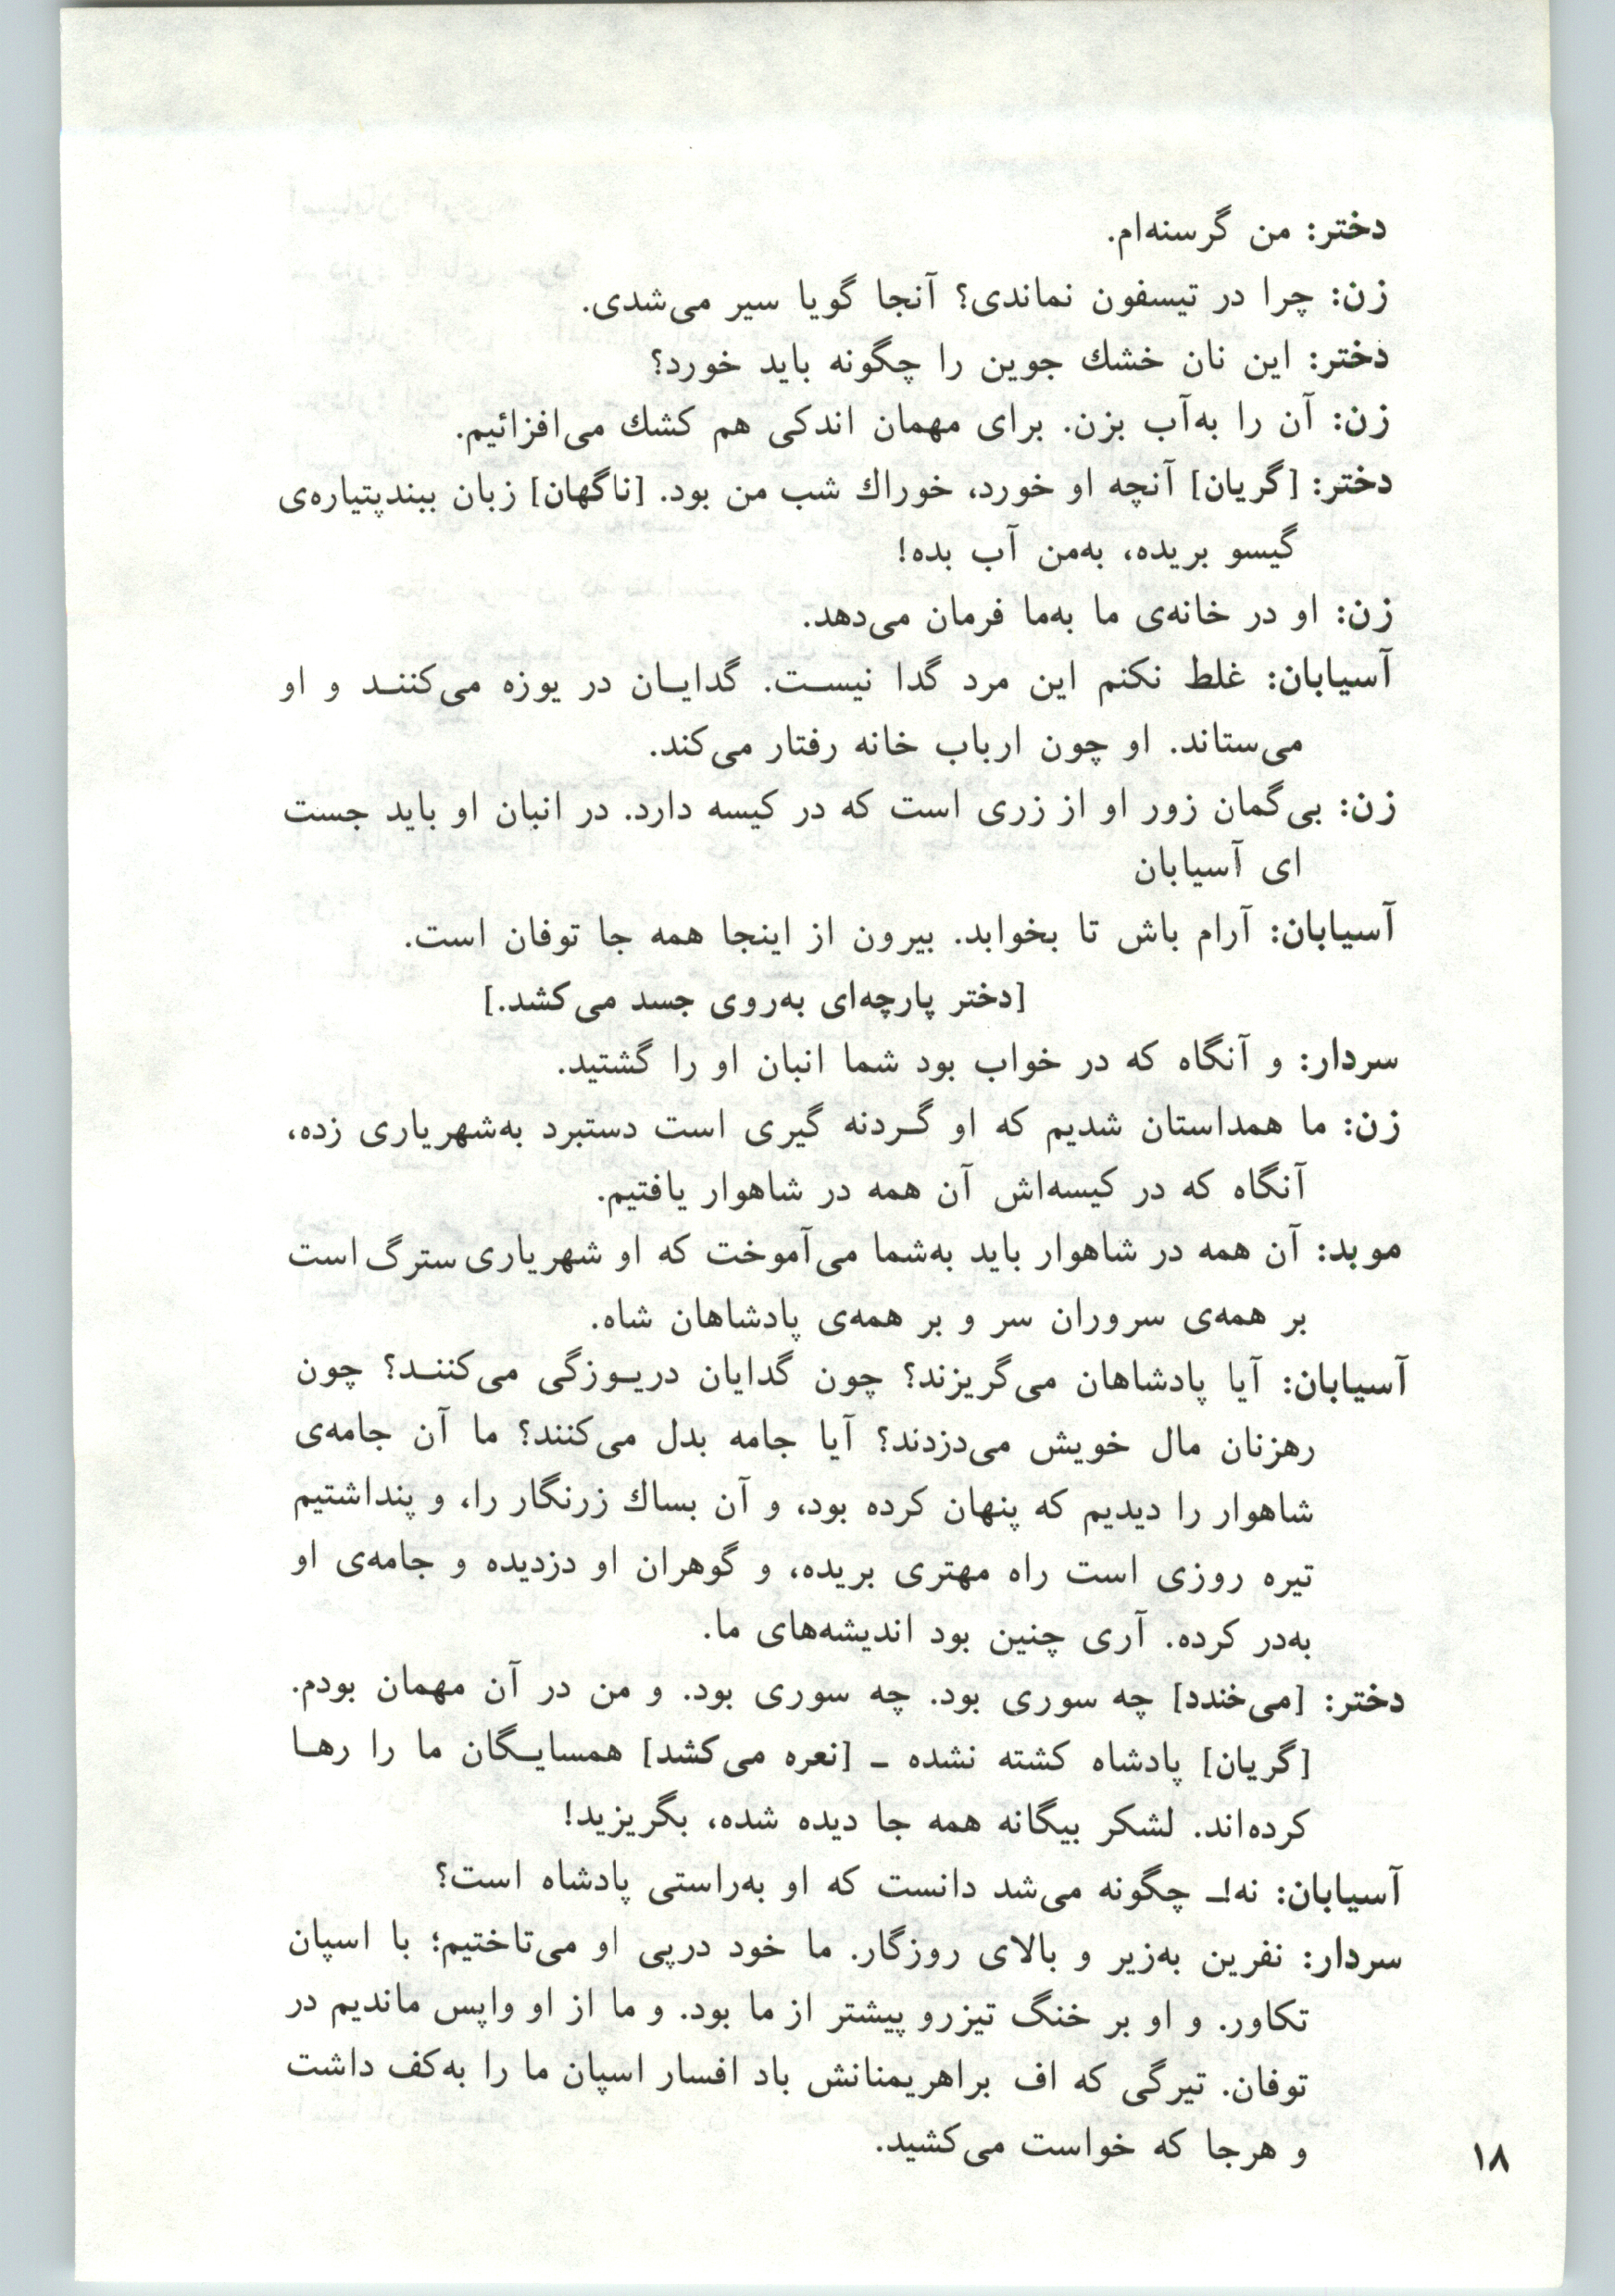 دختر: من گرسنه‌ام.
زن: چرا در تیسفون نماندی؟ آنجا گویا سیر می‌شدی.
دختر: این نان خشك جوین را چگونه باید خورد؟
زن: آن را به‌آب بزن. برای مهمان اندکی هم کشك می‌افزائیم.
دختر: [گریان] آنچه او خورد، خوراك شب من بود. [ناگهان] زبان ببند پتیاره‌ی
گیسو بریده، به‌من آب بده!
زن: او در خانه‌ی ما به‌ما فرمان می‌دهد.
آسیابان: غلط نکنم این مرد گدا نیست. گدایان در یوزه می‌کنند و او
می‌ستاند. او چون ارباب خانه رفتار می‌کند.
زن: بی‌گمان زور او از زری است که در کیسه دارد. در انبان او باید جست
ای آسیابان
آسیابان: آرام باش تا بخوابد. بیرون از اینجا همه جا توفان است.
[دختر پارچه‌ای به‌روی جسد می‌کشد.]
سردار: و آنگاه که در خواب بود شما انبان او را گشتید.
زن: ما همداستان شدیم که او گردنه گیری است دستبرد به‌شهریاری زده،
آنگاه که در کیسه‌اش آن همه در شاهوار یافتیم.
موبد: آن همه در شاهوار باید به‌شما می‌آموخت که او شهریاری سترگ است
بر همه‌ی سروران سر و بر همه‌ی پادشاهان شاه.
آسیابان: آیا پادشاهان می‌گریزند؟ چون گدایان دریوزگی می‌کنند؟ چون
رهزنان مال خویش می‌دزدند؟ آیا جامه بدل می‌کنند؟ ما آن جامه‌ی
شاهوار را دیدیم که پنهان کرده بود، و آن بساك زرنگار را، و پنداشتیم
تیره روزی است راه مهتری بریده، و گوهران او دزدیده و جامه‌ی او
به‌در کرده. آری چنین بود اندیشه‌های ما.
دختر: [می‌خندد] چه سوری بود. چه سوری بود. و من در آن مهمان بودم.
[گریان] پادشاه کشته نشده ـ [نعره می‌کشد] همسایگان ما را رها
کرده‌اند. لشکر بیگانه همه جا دیده شده، بگریزید!
آسیابان: نه!ـ چگونه می‌شد دانست که او به‌راستی پادشاه است؟
سردار: نفرین به‌زیر و بالای روزگار. ما خود درپی او می‌تاختیم؛ با اسپان
تکاور. و او بر خنگ تیزرو پیشتر از ما بود. و ما از او واپس ماندیم در
توفان. تیرگی که اف براهریمنانش باد افسار اسپان ما را به‌کف داشت
و هرجا که خواست می‌کشید.
۱۸